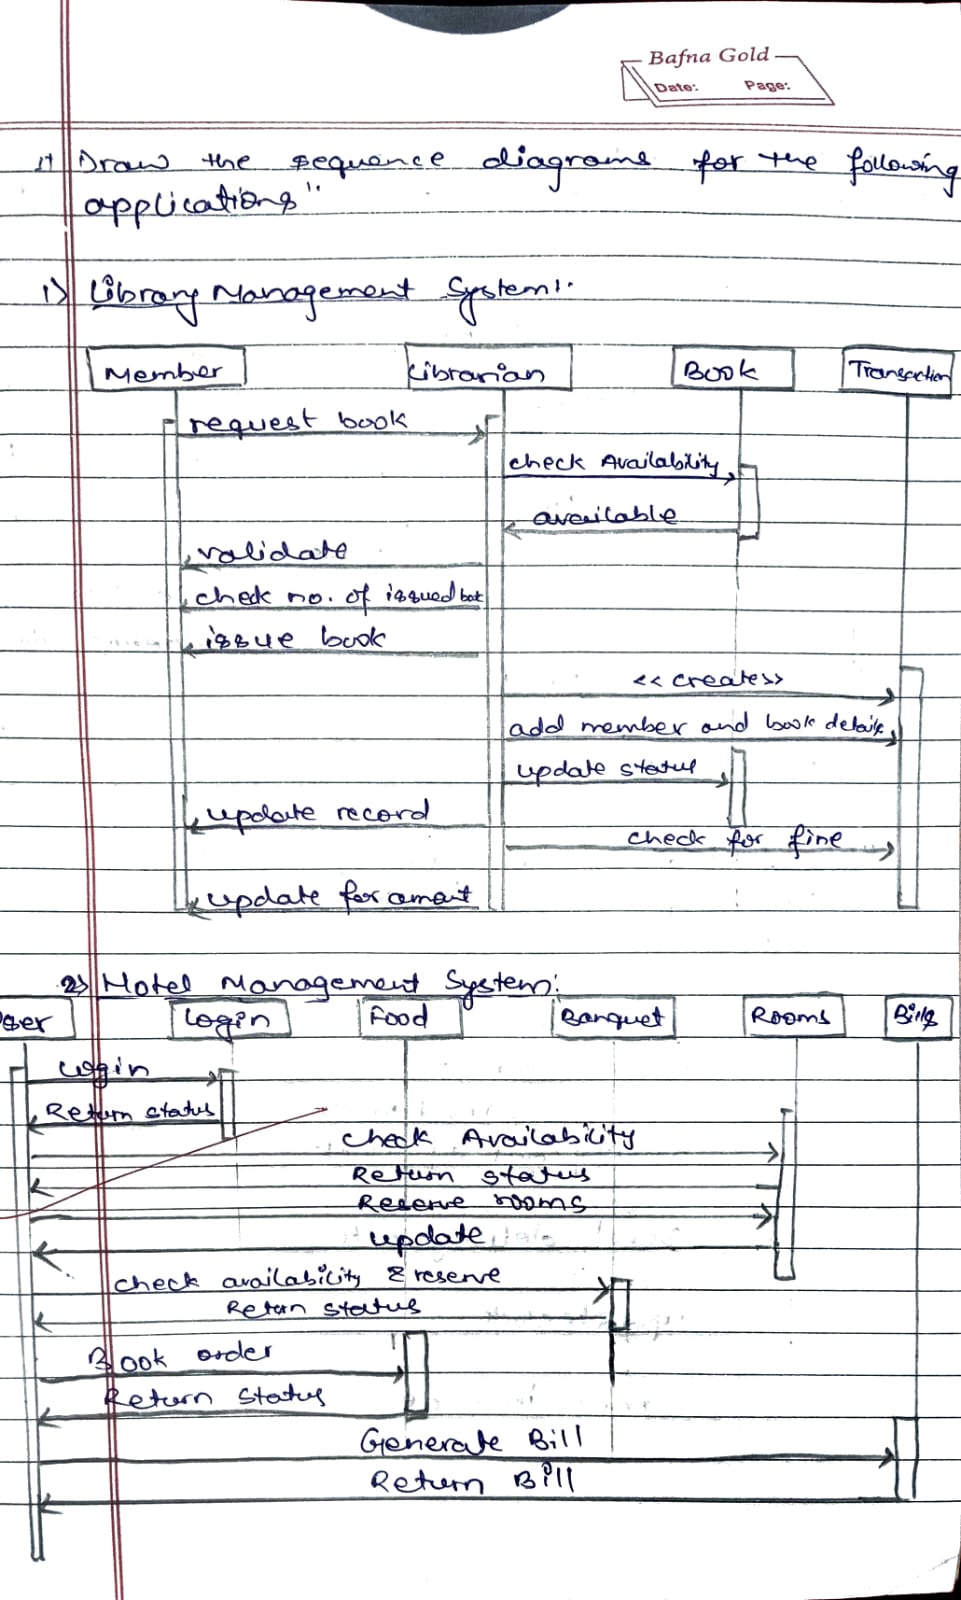 Bafna Gold
Date: Page:
1) Draw the sequence diagrams for the following
applications".
1) Library Management System:.
Member Librarian Book Transaction
request book
check Availability
available
validate
check no. of issued
issue book
<<creates>>
add member and book details
update status
update record
check for fine
update for
2) Hotel Management System:
ser Login Food Banquet Rooms Bills
Login
Return status
Check Availability
Return status
Reserve rooms
update
check availability & reserve
Retun status
Book order
Return Status
Generate Bill
Return Bill